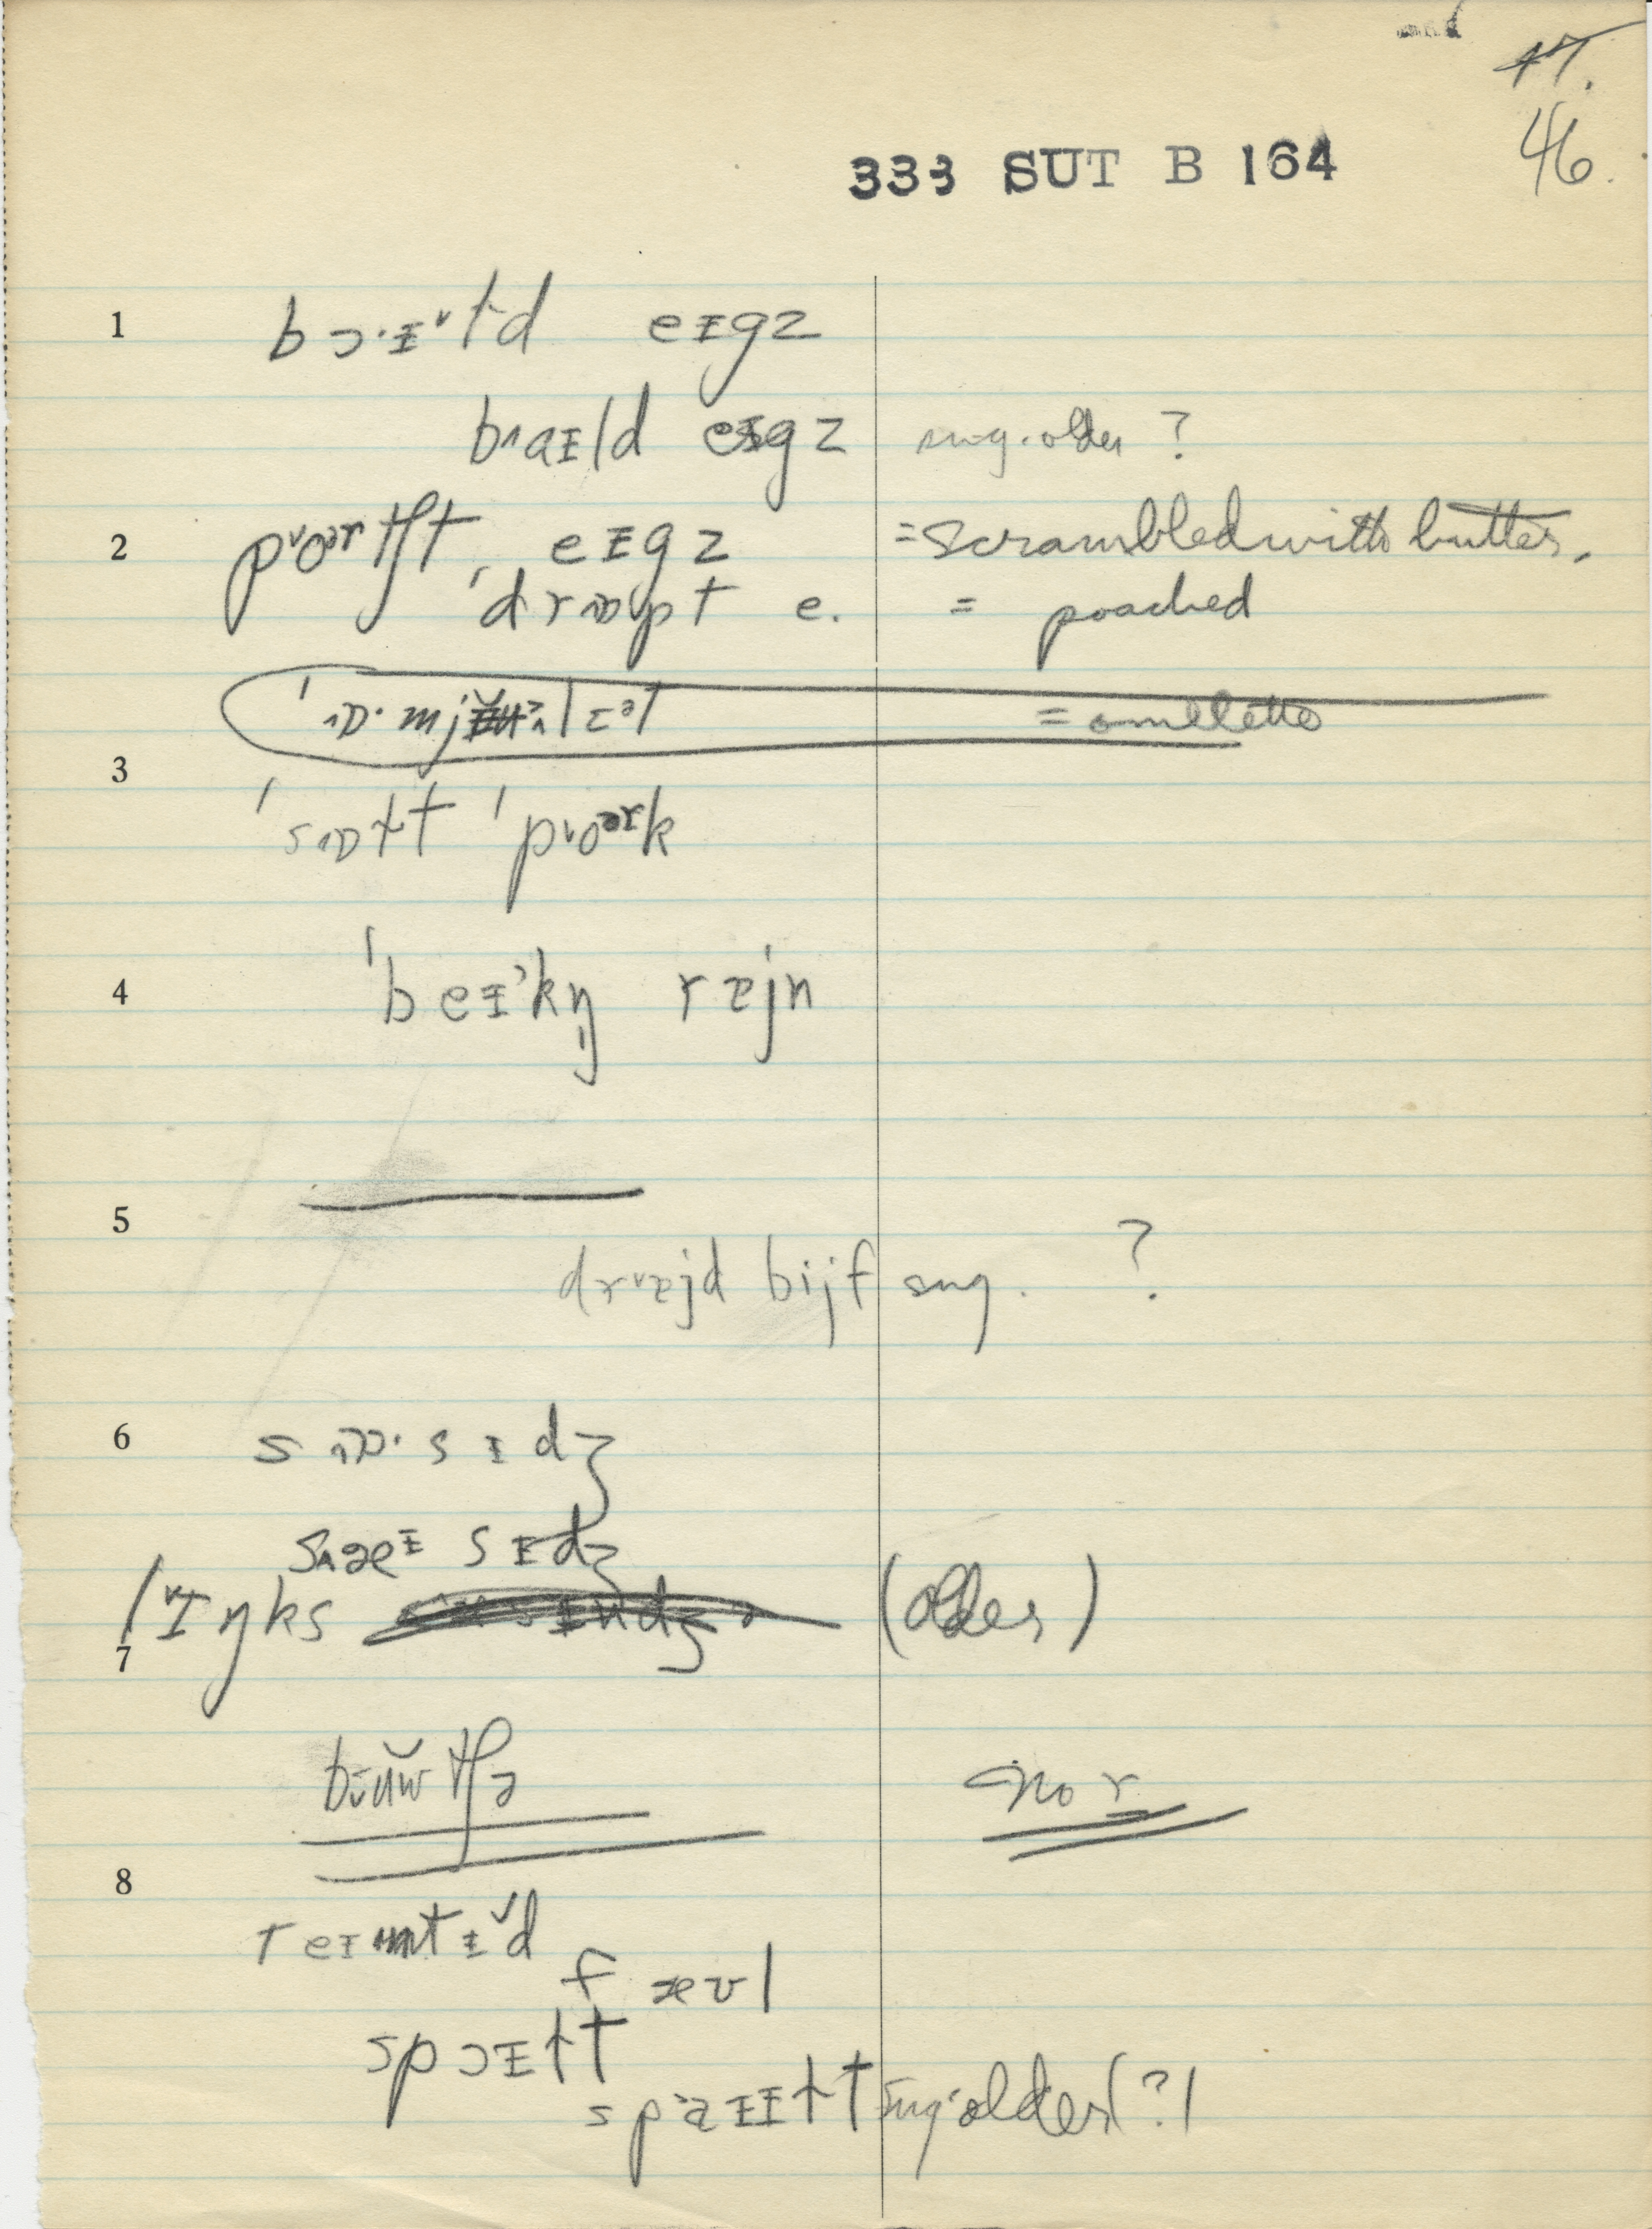 47.
46.
333 SUT B 164
1 bɔ·ɪ˅ɫd eɪgz
bʌaɪld eɪgz sug. older ?
2 p˅oᵊʳtʃt eɪgz = scrambled with butter.
ˈdrɒpt e. = poached
= omelette
3 ˈsɒɫt ˈp˅oᵊʳk
4 ˈbeɪˀkŋ̩ rɐjn
5
dr˅ɐjd bijf sug. ?
6 sɒ·sɪdʒ
sʌæᶦ sɪdʒ
7 l˅ɪŋks (older)
bʉ̆wtʃə no r
8
reɪmtɪ˅d
f æʊl
spɔɪɫt
spaɪɫt sug. older (?)